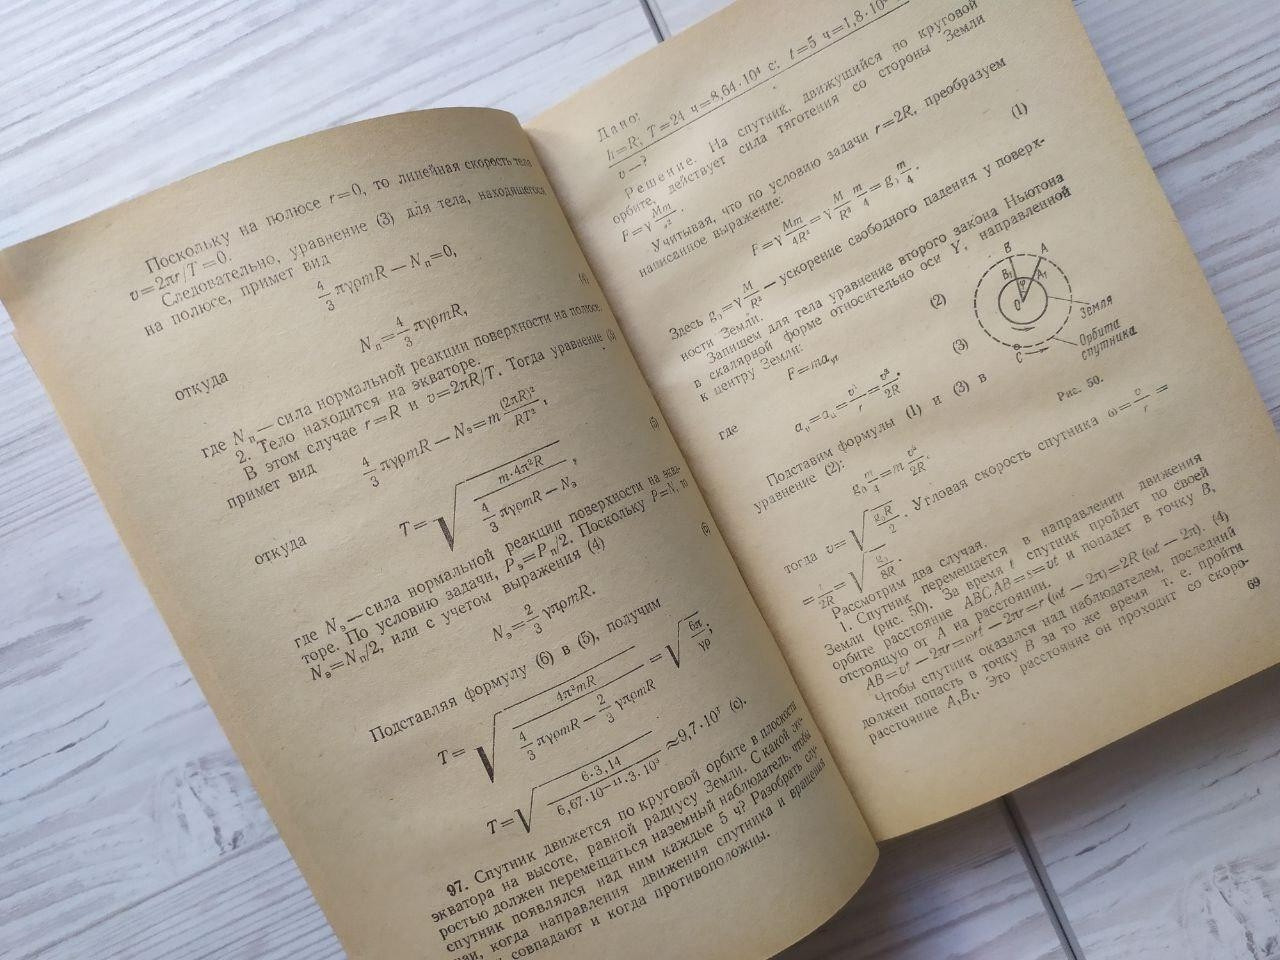 Поскольку на полюсе r=0, то линейная скорость тела
v=2πr/T=0.
Следовательно, уравнение (3) для тела, находящегося
на полюсе, примет вид
4/3 πγρmR — Nп=0,
откуда
Nп=4/3 πγρmR, (4)
где Nп — сила нормальной реакции поверхности на полюсе.
2. Тело находится на экваторе.
В этом случае r=R и v=2πR/T. Тогда уравнение (3)
примет вид
4/3 πγρmR — Nэ=m (2πR)²/RT²,
откуда
T=√(m·4π²R/(4/3 πγρmR — Nэ)), (5)
где Nэ — сила нормальной реакции поверхности на эква-
торе. По условию задачи, Pэ=Pп/2. Поскольку P=N, то
Nэ=Nп/2, или с учетом выражения (4)
Nэ=2/3 γπρmR. (6)
Подставляя формулу (6) в (5), получим
T=√(4π²mR/(4/3 πγρmR — 2/3 γπρmR))=√(6π/γρ);
T=√(6·3,14/(6,67·10⁻¹¹·3·10³))≈9,7·10³ (с).
97. Спутник движется по круговой орбите в плоскости
экватора на высоте, равной радиусу Земли. С какой ско-
ростью должен перемещаться наземный наблюдатель, чтобы
спутник появлялся над ним каждые 5 ч? Разобрать слу-
чаи, когда направления движения спутника и вращения
совпадают и когда противоположны.
Дано:
h=R; T=24 ч=8,64·10⁴ с; t=5 ч=1,8·10⁴
v—?
Решение. На спутник, движущийся по круговой
орбите, действует сила тяготения со стороны Земли
F=γ Mm/r².
Учитывая, что по условию задачи r=2R, преобразуем
написанное выражение:
F=γ Mm/4R²=γ M/R² m/4=g₀ m/4. (1)
Здесь g₀=γ M/R² — ускорение свободного падения у поверх-
ности Земли.
Запишем для тела уравнение второго закона Ньютона
в скалярной форме относительно оси Y, направленной
к центру Земли:
F=maу, (2)
где
aу=aц=v²/r=v²/2R. (3)
B A
B₁ A₁
φ
O
C
Земля
Орбита
спутника
Рис. 50.
Подставим формулы (1) и (3) в
уравнение (2):
g₀ m/4=m v²/2R,
тогда v=√(g₀R/2). Угловая скорость спутника ω=v/r=
=v/2R=√(g₀/8R).
Рассмотрим два случая.
1. Спутник перемещается в направлении движения
Земли (рис. 50). За время t спутник пройдет по своей
орбите расстояние ABCAB=s=vt и попадет в точку B,
отстоящую от A на расстоянии.
AB=vt—2πr=ωrt—2πr=r(ωt—2π)=2R(ωt—2π). (4)
Чтобы спутник оказался над наблюдателем, последний
должен попасть в точку B за то же время т. е. пройти
расстояние A₁B₁. Это расстояние он проходит со скоро-
69